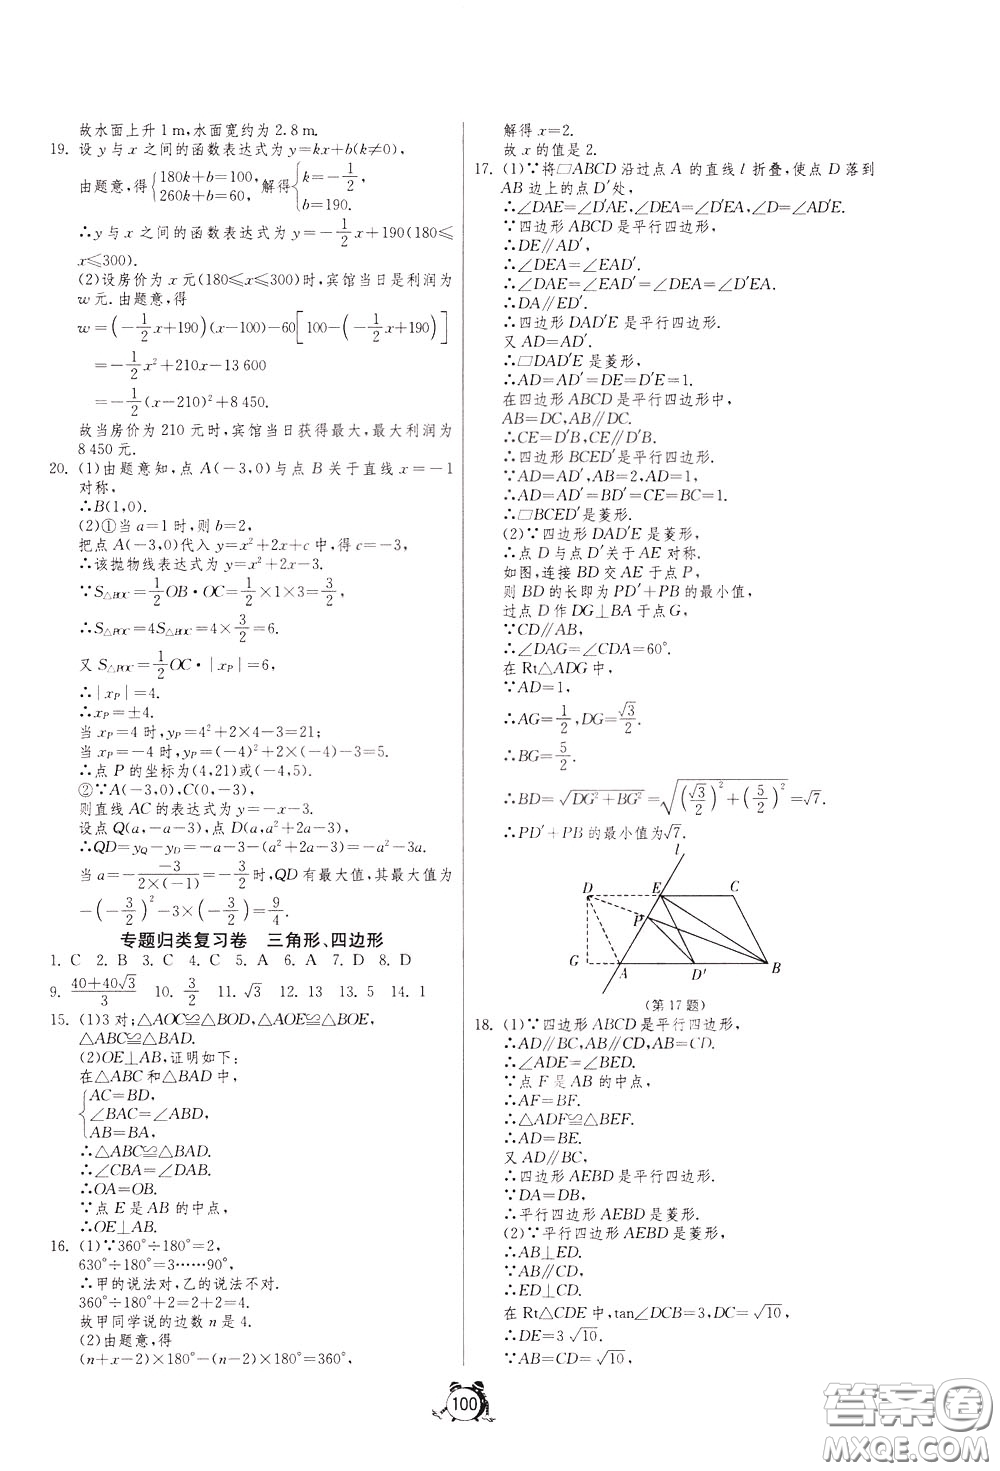 故水面上升 1 m,水面宽约为 2.8 m.
19. 设 y 与 x 之间的函数表达式为 y=kx+b(k≠0),
由题意,得{180k+b=100, 260k+b=60, 解得{k=-1/2, b=190.
∴y 与 x 之间的函数表达式为 y=-1/2x+190(180≤
x≤300).
(2)设房价为 x 元(180≤x≤300)时,宾馆当日是利润为
w 元.由题意,得
w=(-1/2x+190)(x-100)-60[100-(-1/2x+190)]
=-1/2x²+210x-13 600
=-1/2(x-210)²+8 450.
故当房价为 210 元时,宾馆当日获得最大,最大利润为
8 450 元.
20. (1)由题意知,点 A(-3,0)与点 B 关于直线 x=-1
对称,
∴B(1,0).
(2)①当 a=1 时,则 b=2,
把点 A(-3,0)代入 y=x²+2x+c 中,得 c=-3,
∴该抛物线表达式为 y=x²+2x-3.
∵S△BOC=1/2OB·OC=1/2×1×3=3/2,
∴S△POC=4S△BOC=4×3/2=6.
又 S△POC=1/2OC·|xP|=6,
∴|xP|=4.
∴xP=±4.
当 xP=4 时,yP=4²+2×4-3=21;
当 xP=-4 时,yP=(-4)²+2×(-4)-3=5.
∴点 P 的坐标为(4,21)或(-4,5).
②∵A(-3,0),C(0,-3),
则直线 AC 的表达式为 y=-x-3.
设点 Q(a,-a-3),点 D(a,a²+2a-3).
∴QD=yQ-yD=-a-3-(a²+2a-3)=-a²-3a.
当 a=- -3/2×(-1)=-3/2时,QD 有最大值,其最大值为
-(-3/2)²-3×(-3/2)=9/4.
专题归类复习卷 三角形、四边形
1. C 2. B 3. C 4. C 5. A 6. A 7. D 8. D
9. 40+40√3/3 10. 3/2 11. √3 12. 13 13. 5 14. 1
15. (1)3 对;△AOC≌△BOD,△AOE≌△BOE,
△ABC≌△BAD.
(2)OE⊥AB,证明如下:
在△ABC 和△BAD 中,
{AC=BD,
∠BAC=∠ABD,
AB=BA,
∴△ABC≌△BAD.
∴∠CBA=∠DAB.
∴OA=OB.
∵点 E 是 AB 的中点,
∴OE⊥AB.
16. (1)∵360°÷180°=2,
630°÷180°=3……90°,
∴甲的说法对,乙的说法不对.
360°÷180°+2=2+2=4.
故甲同学说的边数 n 是 4.
(2)由题意,得
(n+x-2)×180°-(n-2)×180°=360°,
解得 x=2.
故 x 的值是 2.
17. (1)∵将□ABCD 沿过点 A 的直线 l 折叠,使点 D 落到
AB 边上的点 D′处,
∴∠DAE=∠D′AE,∠DEA=∠D′EA,∠D=∠AD′E.
∵四边形 ABCD 是平行四边形,
∴DE∥AD′,
∴∠DEA=∠EAD′.
∴∠DAE=∠EAD′=∠DEA=∠D′EA.
∴DA∥ED′.
∴四边形 DAD′E 是平行四边形.
又 AD=AD′.
∴□DAD′E 是菱形.
∴AD=AD′=DE=D′E=1.
在四边形 ABCD 是平行四边形中,
AB=DC,AB∥DC.
∴CE=D′B,CE∥D′B.
∴四边形 BCED′是平行四边形.
∵AD=AD′,AB=2,AD=1,
∴AD=AD′=BD′=CE=BC=1.
∴□BCED′是菱形.
(2)∵四边形 DAD′E 是菱形,
∴点 D 与点 D′关于 AE 对称.
如图,连接 BD 交 AE 于点 P,
则 BD 的长即为 PD′+PB 的最小值,
过点 D 作 DG⊥BA 于点 G,
∵CD∥AB,
∴∠DAG=∠CDA=60°.
在 Rt△ADG 中,
∵AD=1,
∴AG=1/2,DG=√3/2.
∴BG=5/2.
∴BD=√DG²+BG²=√(√3/2)²+(5/2)²=√7.
∴PD′+PB 的最小值为√7.
l
D E C
P
G A D′ B
(第 17 题)
18. (1)∵四边形 ABCD 是平行四边形,
∴AD∥BC,AB∥CD,AB=CD.
∴∠ADE=∠BED.
∵点 F 是 AB 的中点,
∴AF=BF.
∴△ADF≌△BEF.
∴AD=BE.
又 AD∥BC,
∴四边形 AEBD 是平行四边形.
∵DA=DB,
∴平行四边形 AEBD 是菱形.
(2)∵平行四边形 AEBD 是菱形,
∴AB⊥ED.
∵AB∥CD,
∴ED⊥CD.
在 Rt△CDE 中,tan∠DCB=3,DC=√10,
∴DE=3√10.
∵AB=CD=√10,
100
答案圈
MXQE.COM